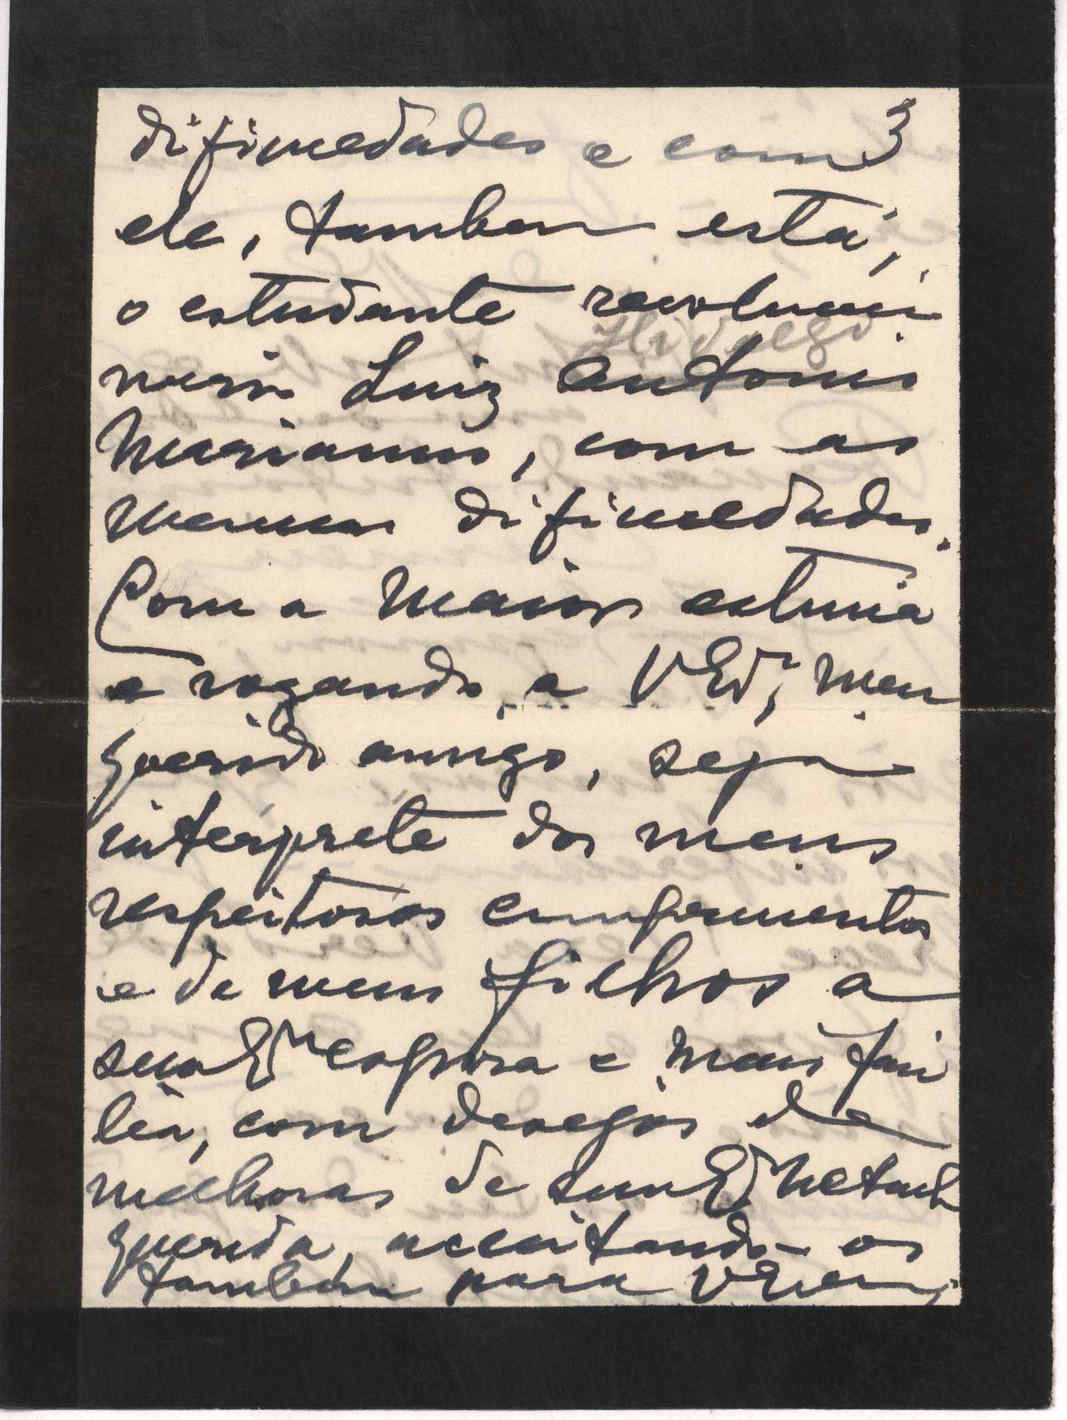 3
dificuldades e com
ele, tambem está,
o estudante revolucio
nario Luiz Antonio
Marianno, com as
mesmas dificuldades.
Com a maior estima
e rogando, a V Exª, meu
querido amigo, seja
intérprete dos meus
respeitosos cumprimentos
e de meus filhos a
sua Exma esposa e mais fami
lia, com desejos de
melhoras de sua Exma
querida, acceitando-os
tambem para V Excia,